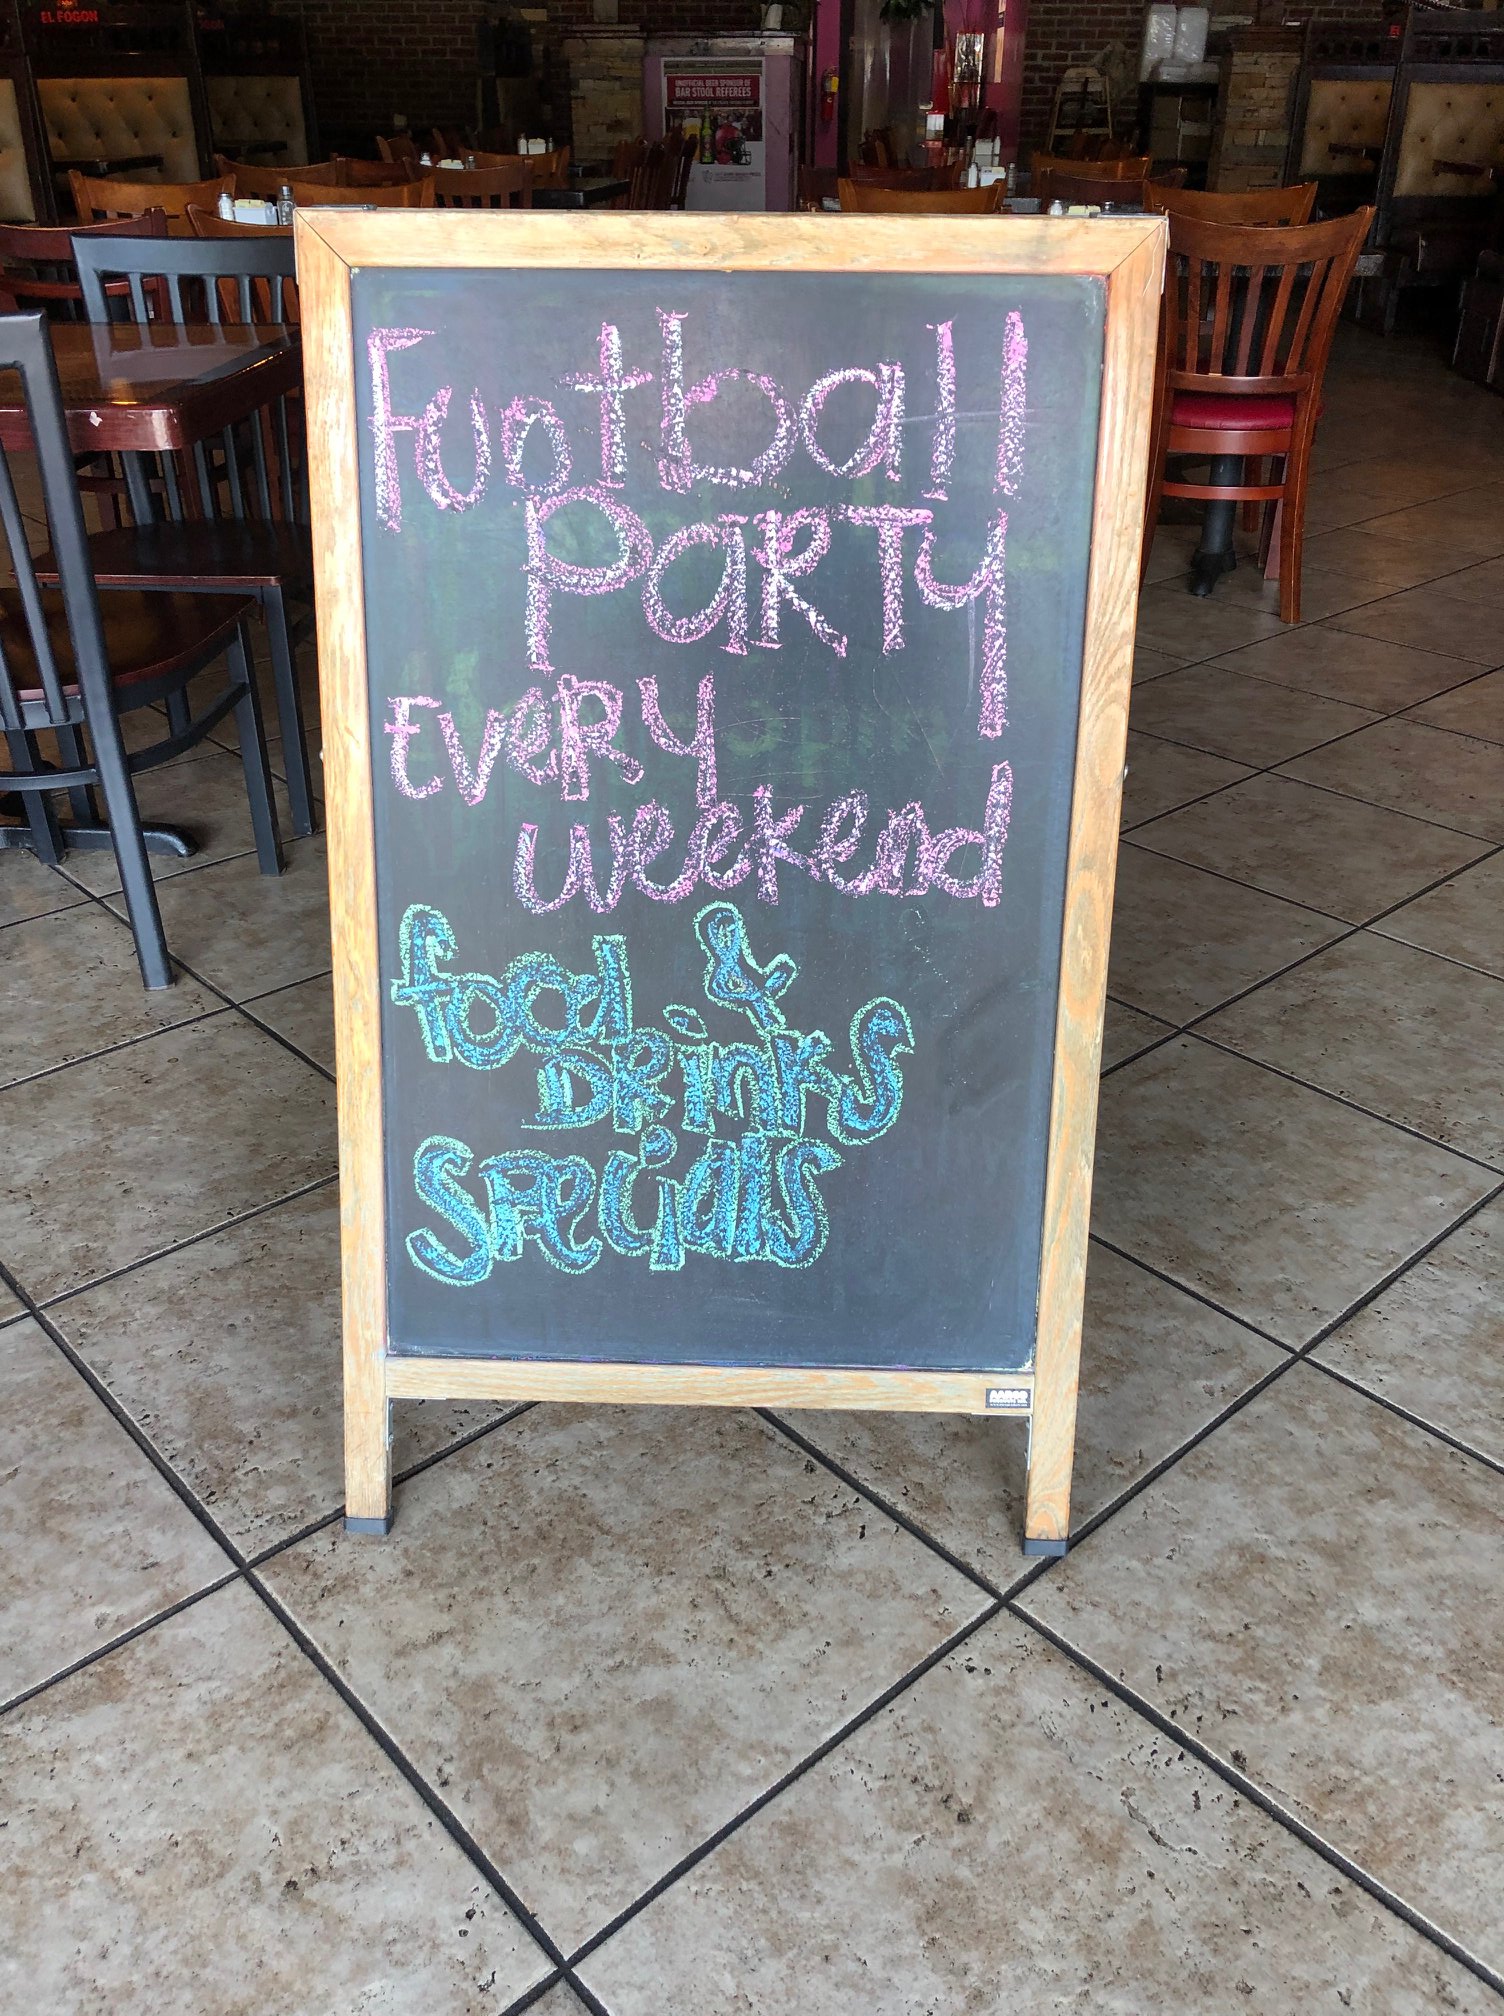 EL FOGON
UNOFFICIAL BEER SPONSOR OF
BAR STOOL REFEREES
Fuotball
PARTY
EVERY
weekend
food &
DRinks
Specials
AARCO